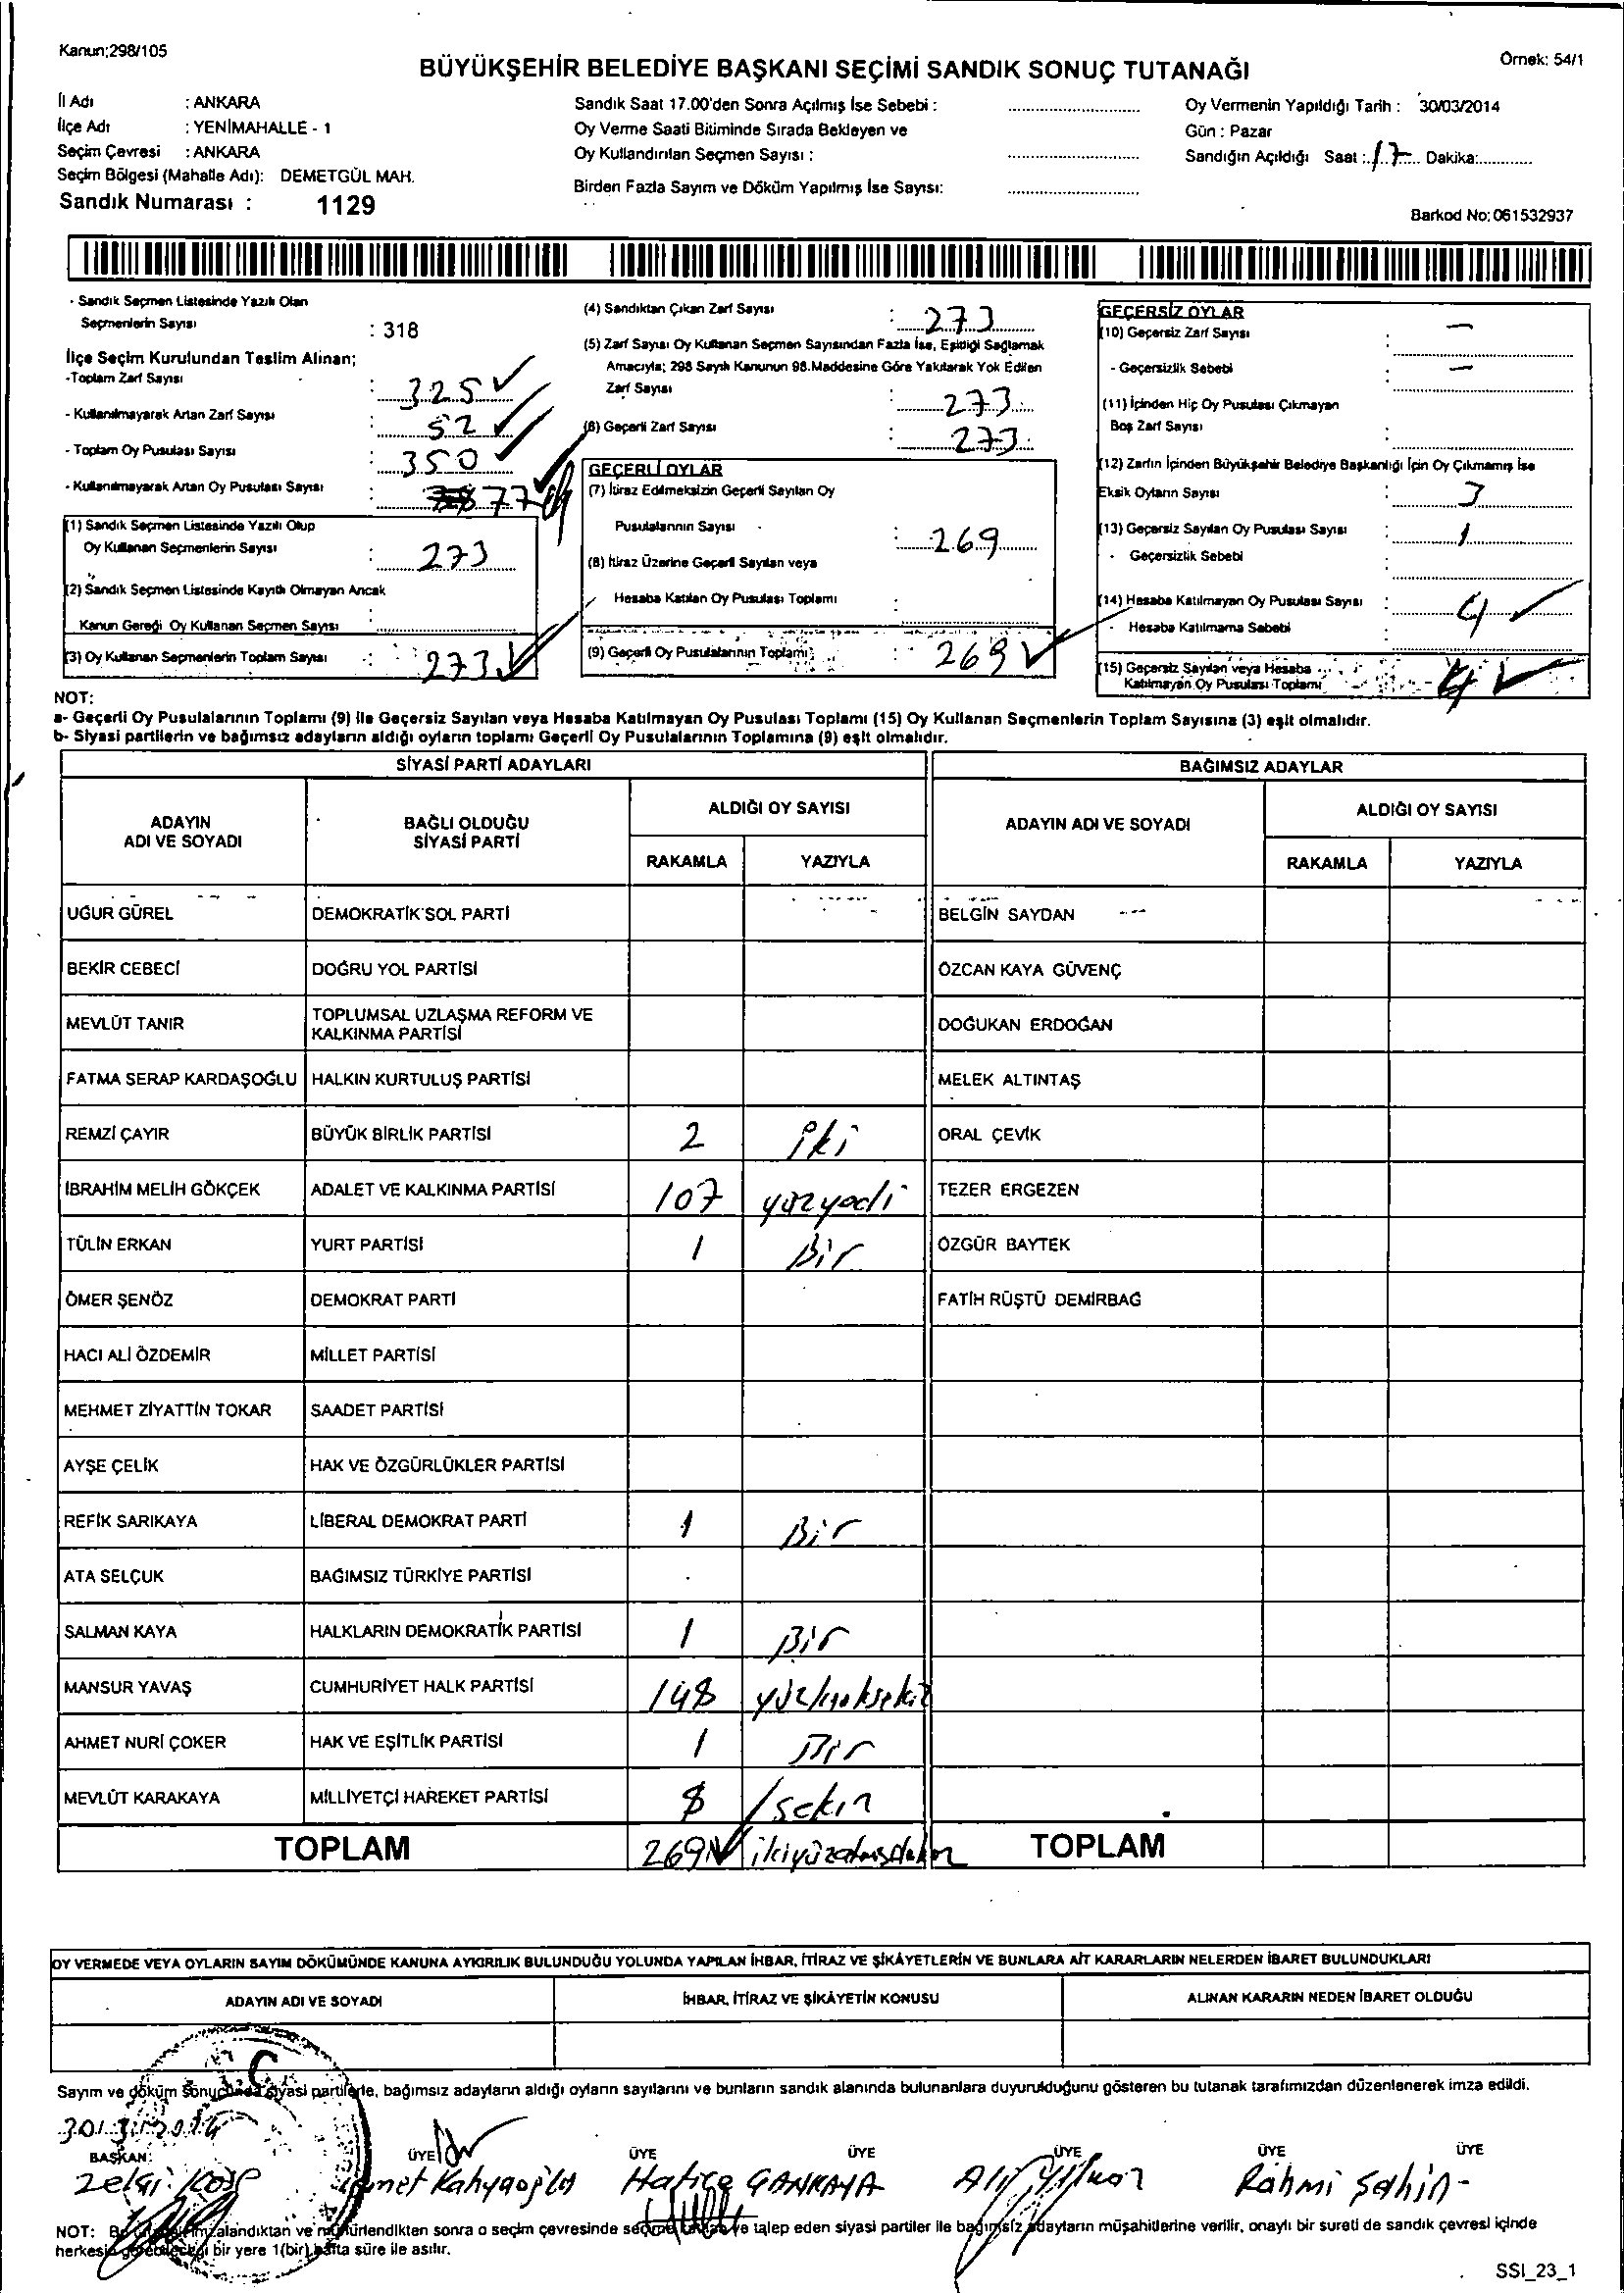 Kanun;298/105
Örnek: 54/1
BÜYÜKŞEHİR BELEDİYE BAŞKANI SEÇİMİ SANDIK SONUÇ TUTANAĞI
İl Adı : ANKARA
İlçe Adı : YENİMAHALLE - 1
Seçim Çevresi : ANKARA
Seçim Bölgesi (Mahalle Adı): DEMETGÜL MAH.
Sandık Numarası : 1129
Sandık Saat 17.00'den Sonra Açılmış İse Sebebi :
Oy Verme Saati Bitiminde Sırada Bekleyen ve
Oy Kullandırılan Seçmen Sayısı :
Birden Fazla Sayım ve Döküm Yapılmış İse Sayısı:
Oy Vermenin Yapıldığı Tarih : 30/03/2014
Gün : Pazar
Sandığın Açıldığı Saat : 17 Dakika:
Barkod No: 061532937
- Sandık Seçmen Listesinde Yazılı Olan
Seçmenlerin Sayısı : 318
İlçe Seçim Kurulundan Teslim Alınan;
-Toplam Zarf Sayısı : 325
- Kullanılmayarak Artan Zarf Sayısı : 52
- Toplam Oy Pusulası Sayısı : 350
- Kullanılmayarak Artan Oy Pusulası Sayısı : 77
(1) Sandık Seçmen Listesinde Yazılı Olup
Oy Kullanan Seçmenlerin Sayısı : 273
(2) Sandık Seçmen Listesinde Kayıtlı Olmayan Ancak
Kanun Gereği Oy Kullanan Seçmen Sayısı :
(3) Oy Kullanan Seçmenlerin Toplam Sayısı : 273
(4) Sandıktan Çıkan Zarf Sayısı : 273
(5) Zarf Sayısı Oy Kullanan Seçmen Sayısından Fazla İse, Eşitliği Sağlamak
Amacıyla; 298 Sayılı Kanunun 98.Maddesine Göre Yakılarak Yok Edilen
Zarf Sayısı : 273
(6) Geçerli Zarf Sayısı : 273
GEÇERLİ OYLAR
(7) İtiraz Edilmeksizin Geçerli Sayılan Oy
Pusulalarının Sayısı : 269
(8) İtiraz Üzerine Geçerli Sayılan veya
Hesaba Katılan Oy Pusulası Toplamı :
(9) Geçerli Oy Pusulalarının Toplamı : 269
GEÇERSİZ OYLAR
(10) Geçersiz Zarf Sayısı : —
- Geçersizlik Sebebi : —
(11) İçinden Hiç Oy Pusulası Çıkmayan
Boş Zarf Sayısı :
(12) Zarfın İçinden Büyükşehir Belediye Başkanlığı İçin Oy Çıkmamış İse
Eksik Oyların Sayısı : 3
(13) Geçersiz Sayılan Oy Pusulası Sayısı : 1
- Geçersizlik Sebebi :
(14) Hesaba Katılmayan Oy Pusulası Sayısı : 4
- Hesaba Katılmama Sebebi :
(15) Geçersiz Sayılan veya Hesaba
Katılmayan Oy Pusulası Toplamı : 4
NOT:
a- Geçerli Oy Pusulalarının Toplamı (9) ile Geçersiz Sayılan veya Hesaba Katılmayan Oy Pusulası Toplamı (15) Oy Kullanan Seçmenlerin Toplam Sayısına (3) eşit olmalıdır.
b- Siyasi partilerin ve bağımsız adayların aldığı oyların toplamı Geçerli Oy Pusulalarının Toplamına (9) eşit olmalıdır.
SİYASİ PARTİ ADAYLARI BAĞIMSIZ ADAYLAR
ADAYIN ADI VE SOYADI BAĞLI OLDUĞU SİYASİ PARTİ ALDIĞI OY SAYISI ADAYIN ADI VE SOYADI ALDIĞI OY SAYISI
RAKAMLA YAZIYLA RAKAMLA YAZIYLA
UĞUR GÜREL DEMOKRATİK SOL PARTİ BELGİN SAYDAN
BEKİR CEBECİ DOĞRU YOL PARTİSİ ÖZCAN KAYA GÜVENÇ
MEVLÜT TANIR TOPLUMSAL UZLAŞMA REFORM VE KALKINMA PARTİSİ DOĞUKAN ERDOĞAN
FATMA SERAP KARDAŞOĞLU HALKIN KURTULUŞ PARTİSİ MELEK ALTINTAŞ
REMZİ ÇAYIR BÜYÜK BİRLİK PARTİSİ 2 iki ORAL ÇEVİK
İBRAHİM MELİH GÖKÇEK ADALET VE KALKINMA PARTİSİ 107 yüzyedi TEZER ERGEZEN
TÜLİN ERKAN YURT PARTİSİ 1 Bir ÖZGÜR BAYTEK
ÖMER ŞENÖZ DEMOKRAT PARTİ FATİH RÜŞTÜ DEMİRBAĞ
HACI ALİ ÖZDEMİR MİLLET PARTİSİ
MEHMET ZİYATTİN TOKAR SAADET PARTİSİ
AYŞE ÇELİK HAK VE ÖZGÜRLÜKLER PARTİSİ
REFİK SARIKAYA LİBERAL DEMOKRAT PARTİ 1 Bir
ATA SELÇUK BAĞIMSIZ TÜRKİYE PARTİSİ
SALMAN KAYA HALKLARIN DEMOKRATİK PARTİSİ 1 Bir
MANSUR YAVAŞ CUMHURİYET HALK PARTİSİ 148
AHMET NURİ ÇOKER HAK VE EŞİTLİK PARTİSİ 1 Bir
MEVLÜT KARAKAYA MİLLİYETÇİ HAREKET PARTİSİ 8 sekiz
TOPLAM 269 TOPLAM
OY VERMEDE VEYA OYLARIN SAYIM DÖKÜMÜNDE KANUNA AYKIRILIK BULUNDUĞU YOLUNDA YAPILAN İHBAR, İTİRAZ VE ŞİKÂYETLERİN VE BUNLARA AİT KARARLARIN NELERDEN İBARET BULUNDUKLARI
ADAYIN ADI VE SOYADI İHBAR, İTİRAZ VE ŞİKÂYETİN KONUSU ALINAN KARARIN NEDEN İBARET OLDUĞU
Sayım ve döküm sonucunda siyasi partilerle, bağımsız adayların aldığı oyların sayılarını ve bunların sandık alanında bulunanlara duyurulduğunu gösteren bu tutanak tarafımızdan düzenlenerek imza edildi.
30/3/2014
BAŞKAN: ÜYE ÜYE ÜYE ÜYE ÜYE ÜYE
Hatice Ali Yılmaz Rahmi Şahin
NOT: Bu tutanak imzalandıktan ve mühürlendikten sonra o seçim çevresinde seçime katılan ve talep eden siyasi partiler ile bağımsız adayların müşahitlerine verilir, onaylı bir sureti de sandık çevresi içinde
herkesin görebileceği bir yere 1(bir) hafta süre ile asılır.
SSI_23_1